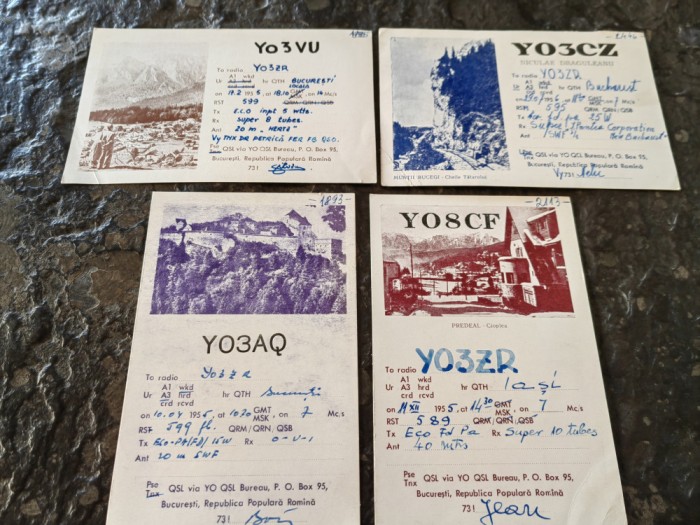 YO3VU
To radio YO3ZR
A1 wkd
Ur A3 hrd hr QTH BUCUREȘTI
crd
on 17.2 195 at 18.10 on Mc/s
RST 599 QRM/QRN/QSB
E.C.O inpt 5 wtts.
super 8 tubes.
Ant 20 m „HERTZ"
VY TNX DR PETRICĂ FER FB QSO.
Pse QSL via YO QSL Bureau, P. O. Box 95,
București, Republica Populară Romînă
731
YO3CZ
NICULAE DRAGULEANU
To radio YO3ZR
A1 wkd
Ur A3 hrd hr QTH Bucharest
RST 595 QRM/QRN/QSB
25W
Rx Super
Ant
MUNȚII BUCEGI - Cheile Tătarului
Pse QSL via YO QSL Bureau, P. O. Box 95,
București, Republica Populară Romînă
731
-1893-
YO3AQ
To radio YO3ZR
A1 wkd
Ur A3 hrd hr QTH București
crd rcvd
on 10.04 1955, at 1070 GMT MSK, on 7 Mc/s
RST 599 fb. QRM/QRN, QSB
Tx 15W Rx 0-V-1
Ant 20 m SWF
Pse
Tnx QSL via YO QSL Bureau, P. O. Box 95,
București, Republica Populară Romînă
731
-2113-
YO8CF
PREDEAL - Cioplea
To radio YO3ZR
A1 wkd
Ur A3 hrd hr QTH Iași
crd rcvd
on 11 XII 1955, at 14.30 GMT MSK, on 7 Mc/s
RST 589 QRM/QRN, QSB
Tx Eco Fd Pa Rx Super 10 tubes
Ant 40 mtrs
Pse
Tnx QSL via YO QSL Bureau, P. O. Box 95,
București, Republica Populară Romînă
731 Jean